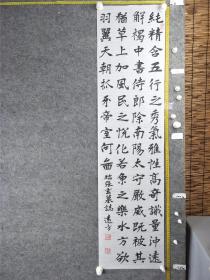 純精含五行之秀氣雅性高奇識量沖遠
解褐中書侍郎除南陽太守嚴威既被其
猶草上加風民之悅化若魚之樂水方欲
羽翼天朝抓牙帝室何啚 臨張玄墓誌 遠方